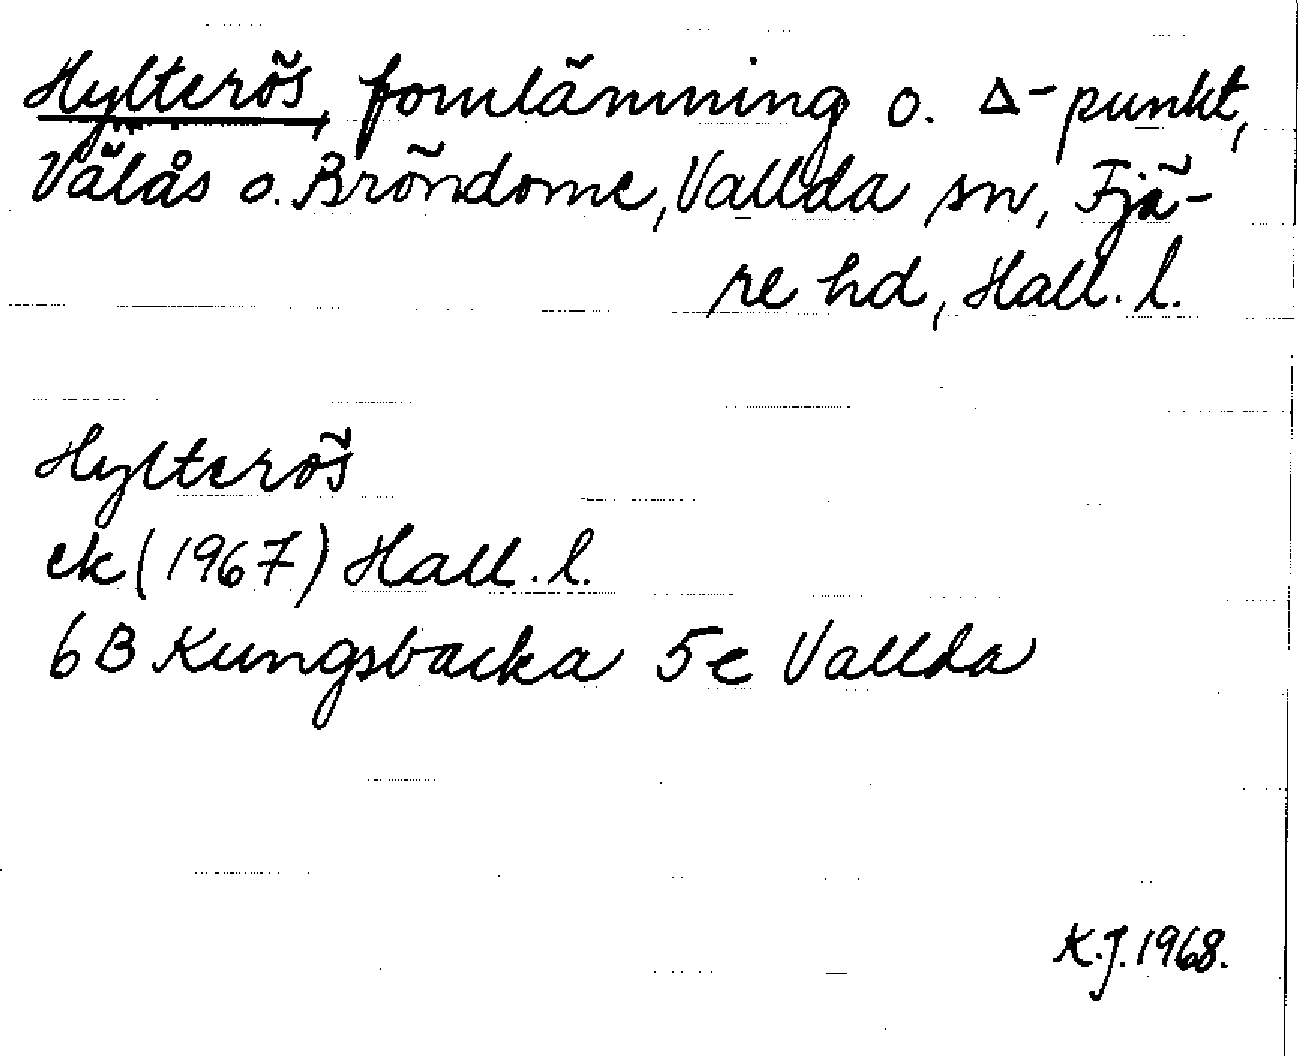 Hylterös, fornlämning o. Δ-punkt,
Välås o. Bröndome, Vallda sn, Fjä-
re hd, Hall. l.
Hylterös
ek (1967) Hall. l.
6B Kungsbacka 5e Vallda
K.J. 1968.